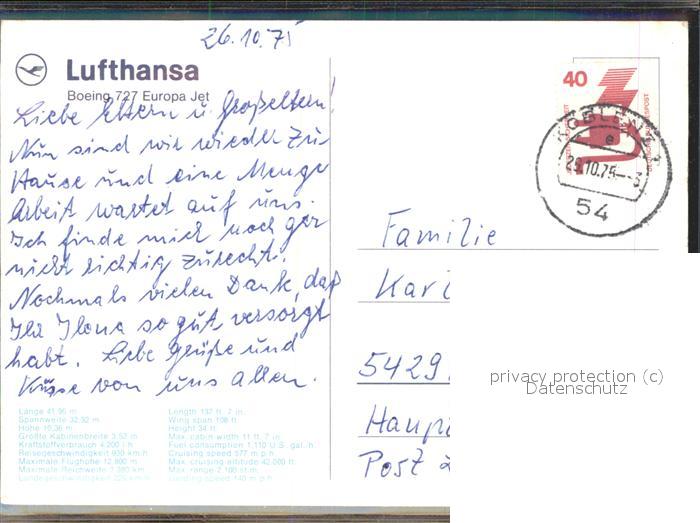 26.10.75
Lufthansa
Boeing 727 Europa Jet
Liebe Eltern u. Großeltern!
Nun sind wir wieder zu-
Hause und eine Menge
Arbeit wartet auf uns.
Ich finde mich noch gar
nicht richtig zurecht.
Nochmals vielen Dank, daß
Ihr Ilona so gut versorgt
habt. Liebe Grüße und
Küsse von uns allen.
Länge 41,96 m
Spannweite 32,92 m
Höhe 10,36 m
Größte Kabinenbreite 3,52 m
Kraftstoffverbrauch 4.200 l h
Reisegeschwindigkeit 930 km h
Maximale Flughöhe 12.800 m
Maximale Reichweite km
Landegeschwindigkeit 225 km h
Length 137 ft. 7 in.
Wing span 108 ft.
Height 34 ft.
Max. cabin width 11 ft. 7 in.
Fuel consumption 1,110 U.S. gal. h.
Cruising speed 577 m.p.h.
Max. cruising altitude 42,000 ft.
Max. range 2,100 st.m.
Landing speed 140 m.p.h.
40
KOBLENZ
e
29.10.75
54
Familie
Kari
5429
Haupt
Post
privacy protection (c)
Datenschutz